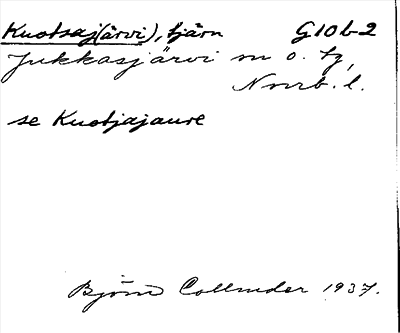 Kuotsaj(ärvi), tjärn G10b-2
Jukkasjärvi sn o. tg,
Norrb. l.
se Kuotjajaure
Björn Collinder 1937.